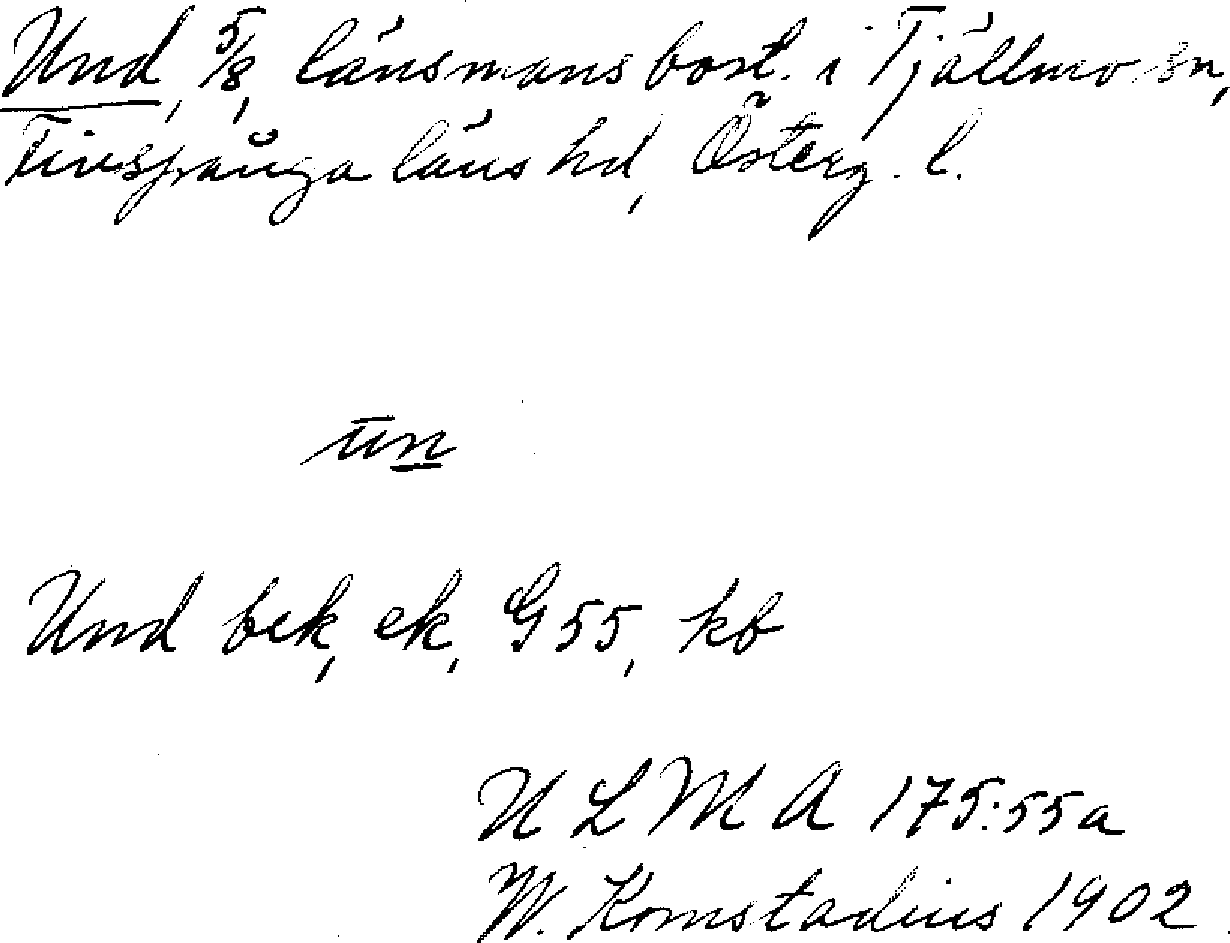 Und, 5/8, länsmansbost. i Tjällmo sn,
Finspånga läns hd, Österg. l.
ūn
Und bek, ek, G55, kb
ULMA 175:55a
W. Komstadius 1902